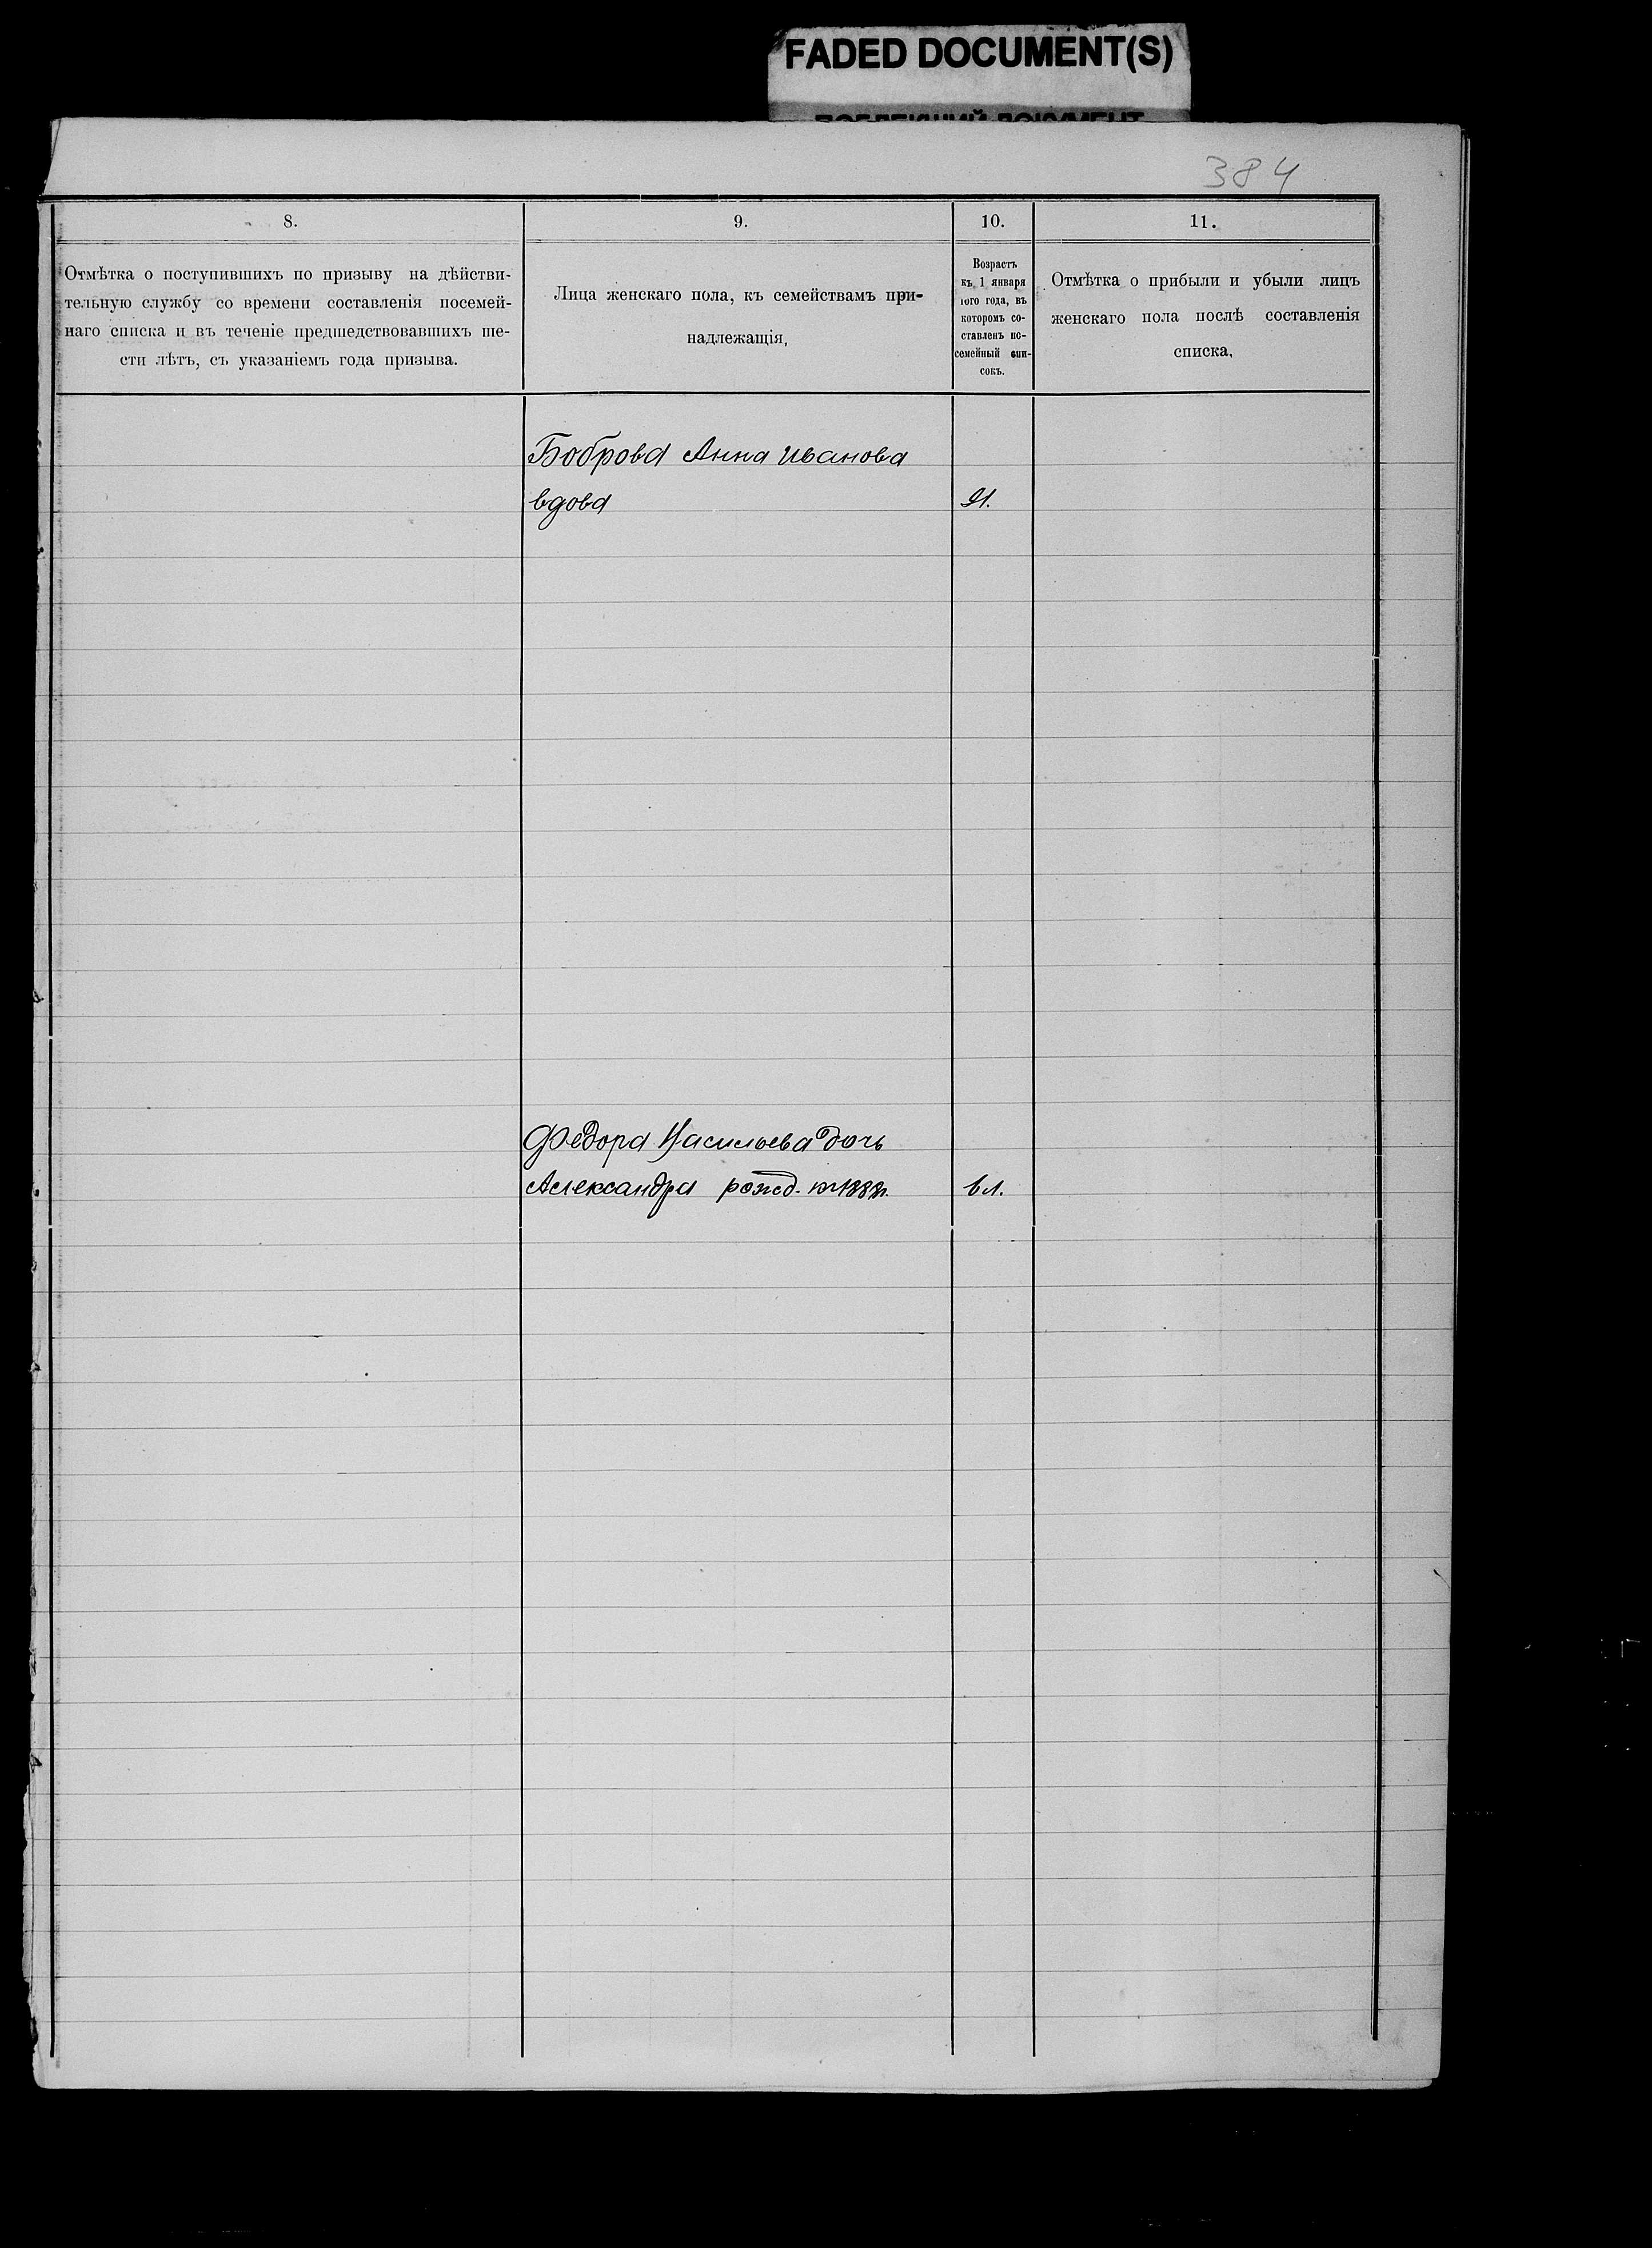 FADED DOCUMENT(S)
ПОБЛЕКШИЙ ДОКУМЕНТ
384
8.
9.
10.
11.
Отмѣтка о поступившихъ по призыву на дѣйстви-
тельную службу со времени составленія посемей-
наго списка и въ теченіе предшедствовавшихъ ше-
сти лѣтъ, съ указаніемъ года призыва.
Лица женскаго пола, къ семействамъ при-
надлежащія,
Возрастъ
къ 1 января
того года, въ
которомъ со-
ставленъ по-
семейный спи-
сокъ.
Отмѣтка о прибыли и убыли лицъ
женскаго пола послѣ составленія
списка,
Боброва Анна Иванова
вдова
Федора Васильева дочь
Александра рожд.